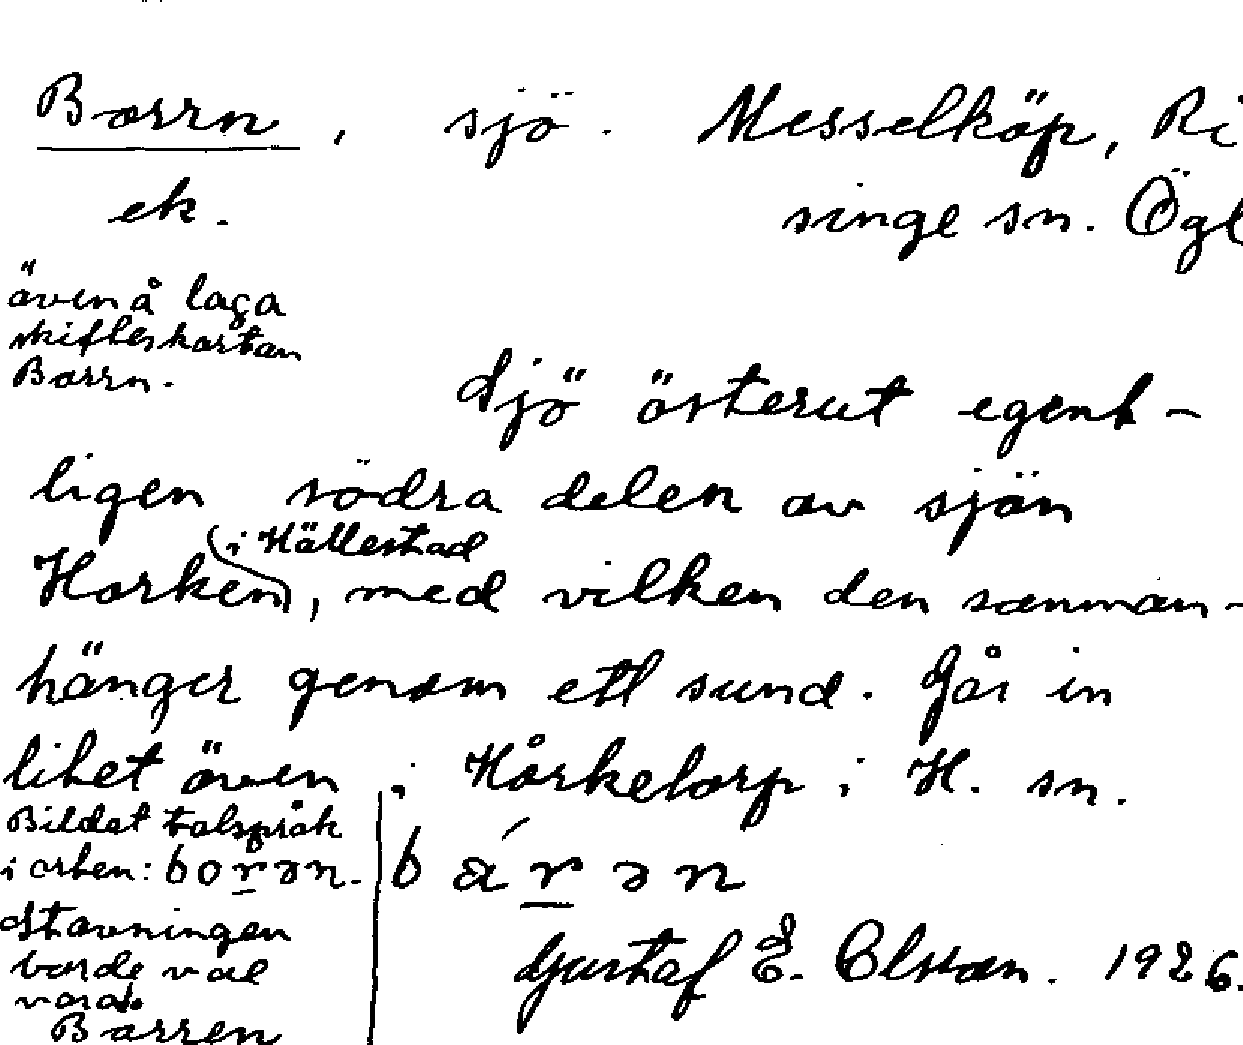 Borrn, sjö. Messelköp, Ri
ek. singe sn. Ögl
även å laga
skifteskartan
Borrn.
Sjö österut egent-
ligen södra delen av sjön
i Hällestad
Horken, med vilken den samman-
hänger genom ett sund. Går in
litet även i Hårketorp i H. sn.
Bildat talspråk
i orten: borən.
bárən
Stavningen
borde väl
vara
Barren
Gustaf E. Olsson. 1926.